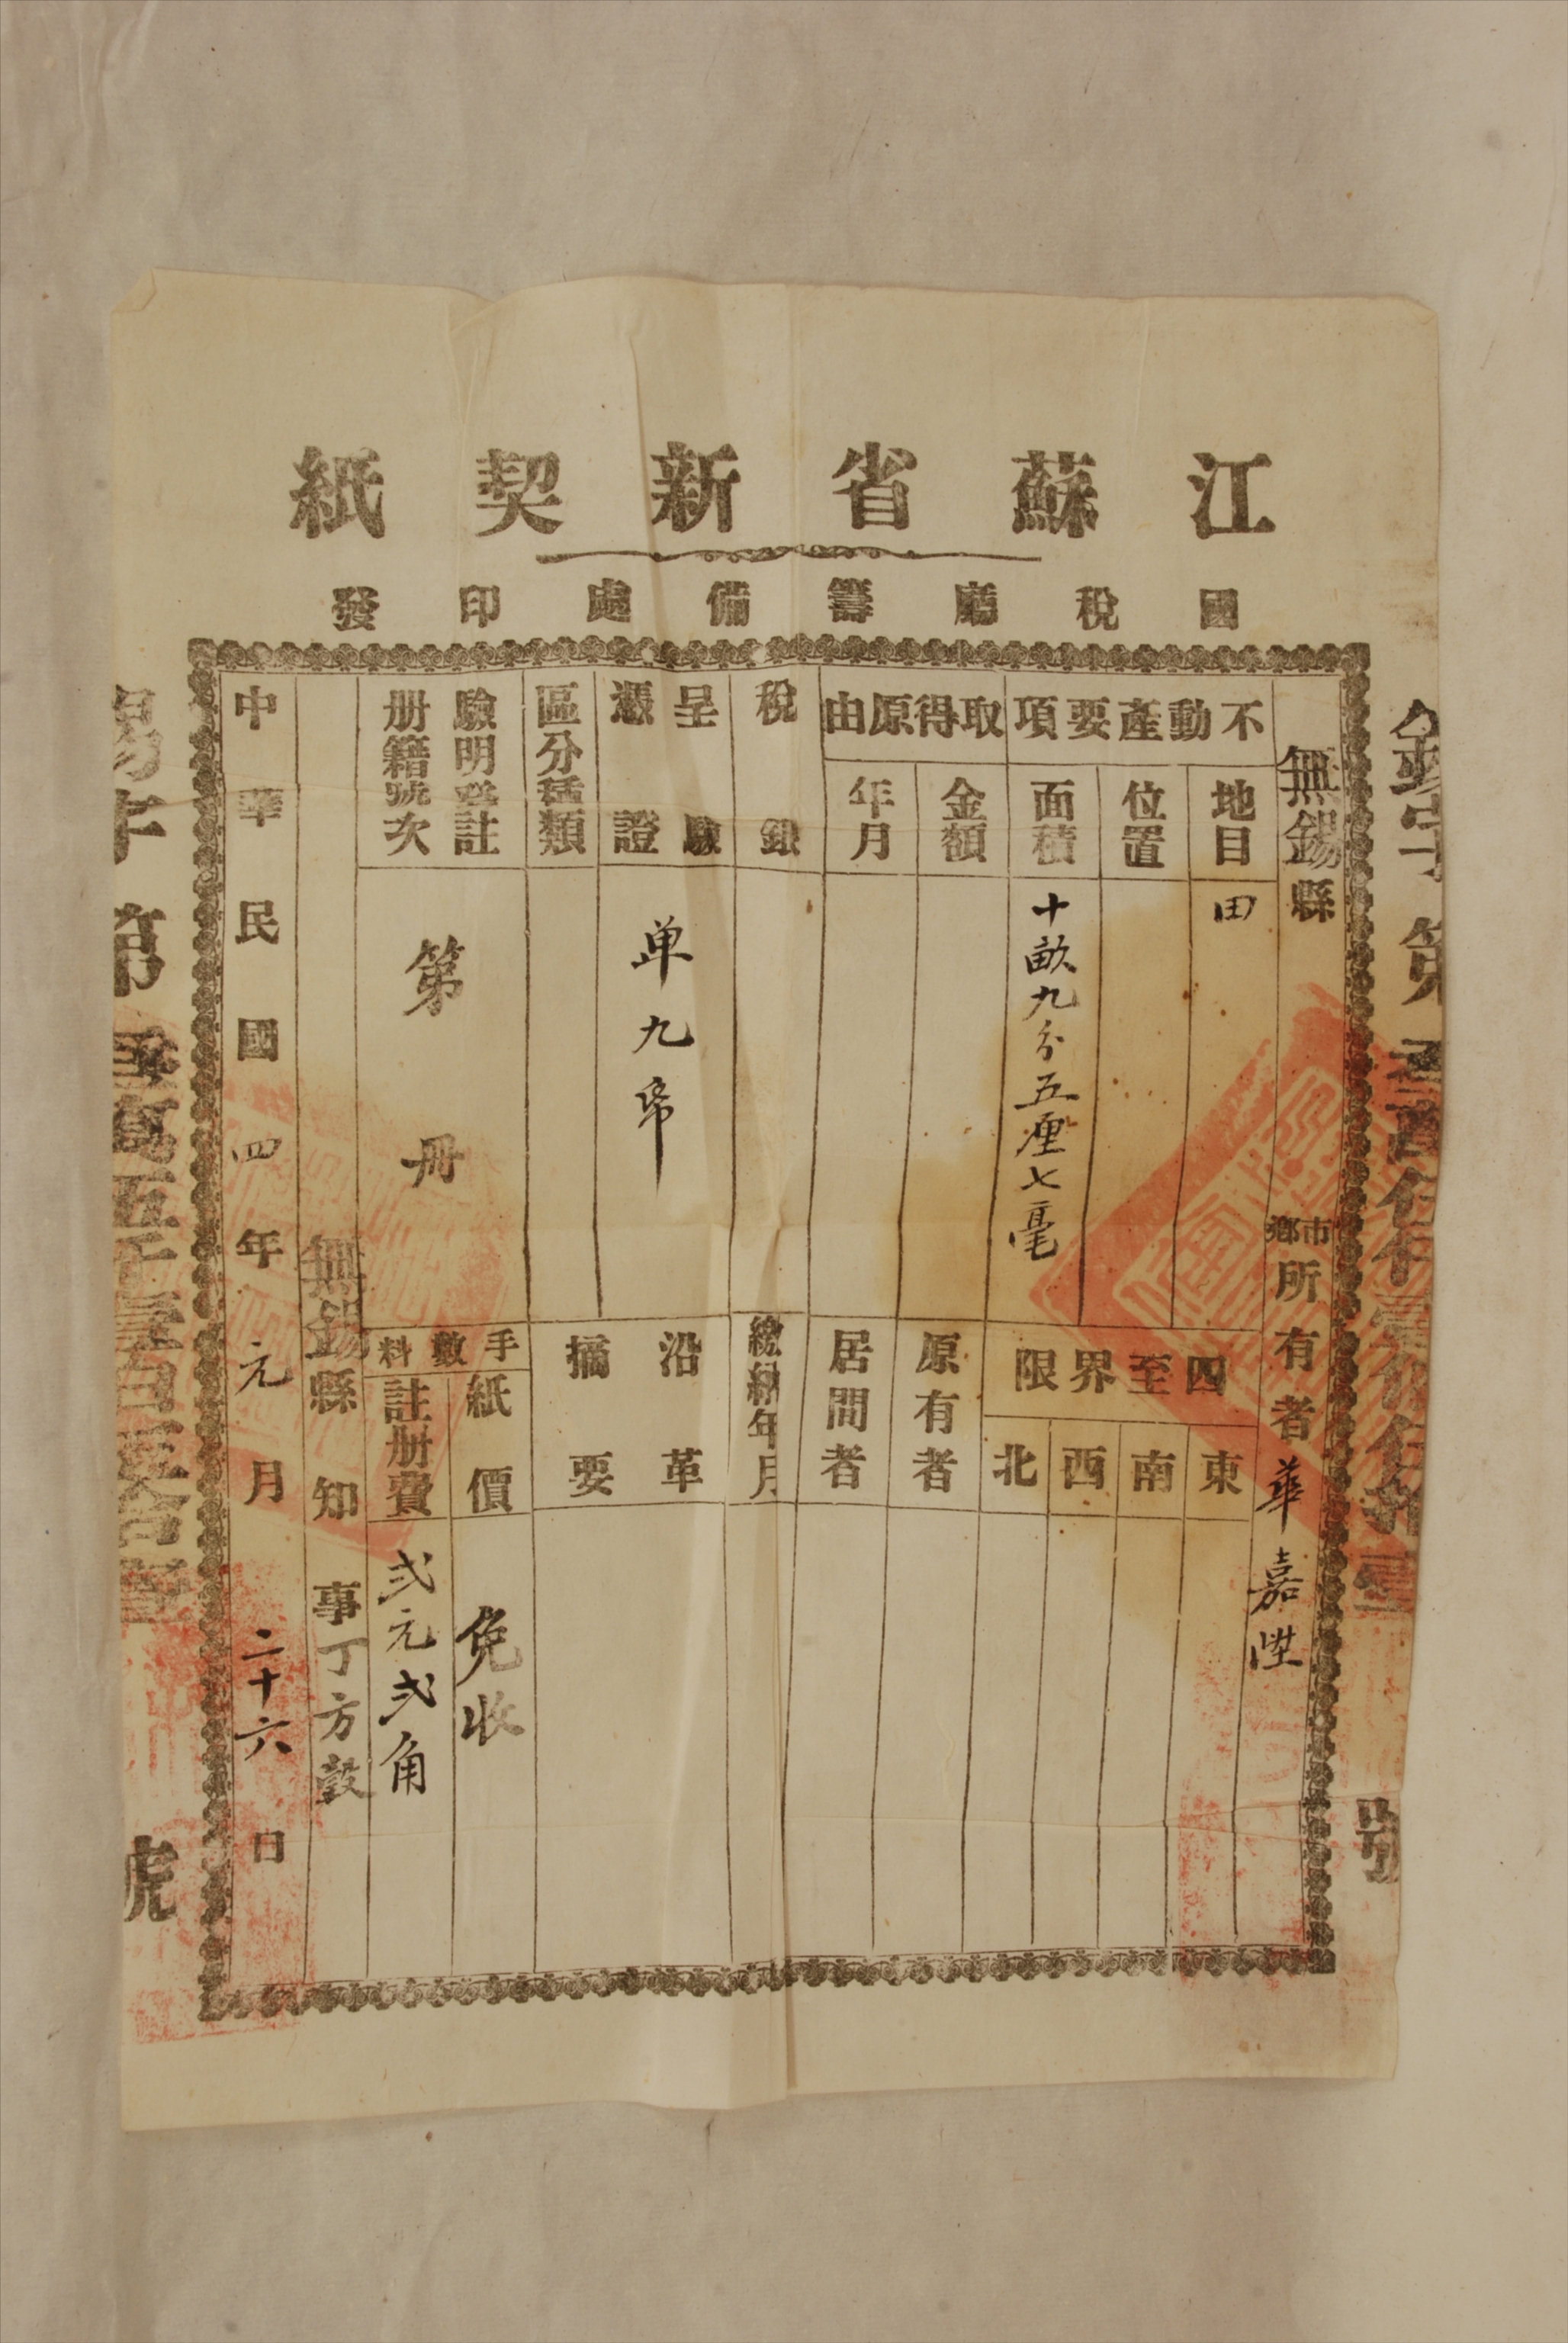 江蘇省新契紙
國稅廳籌備處印發
無錫縣
市鄉所有者華嘉陞
不動產要項
地目
田
位置
面積
十畝九分五厘七毫
取得原由
金額
年月
稅銀
呈驗憑證
单九帋
區分種類
驗明登註册籍號次
第 册
四至界限
東
南
西
北
原有者
居間者
繳納年月
沿革摘要
手數料
紙價
免收
註册費
弍元弍角
無錫縣知事丁方瑴
中華民國四年元月二十六日
字第
號